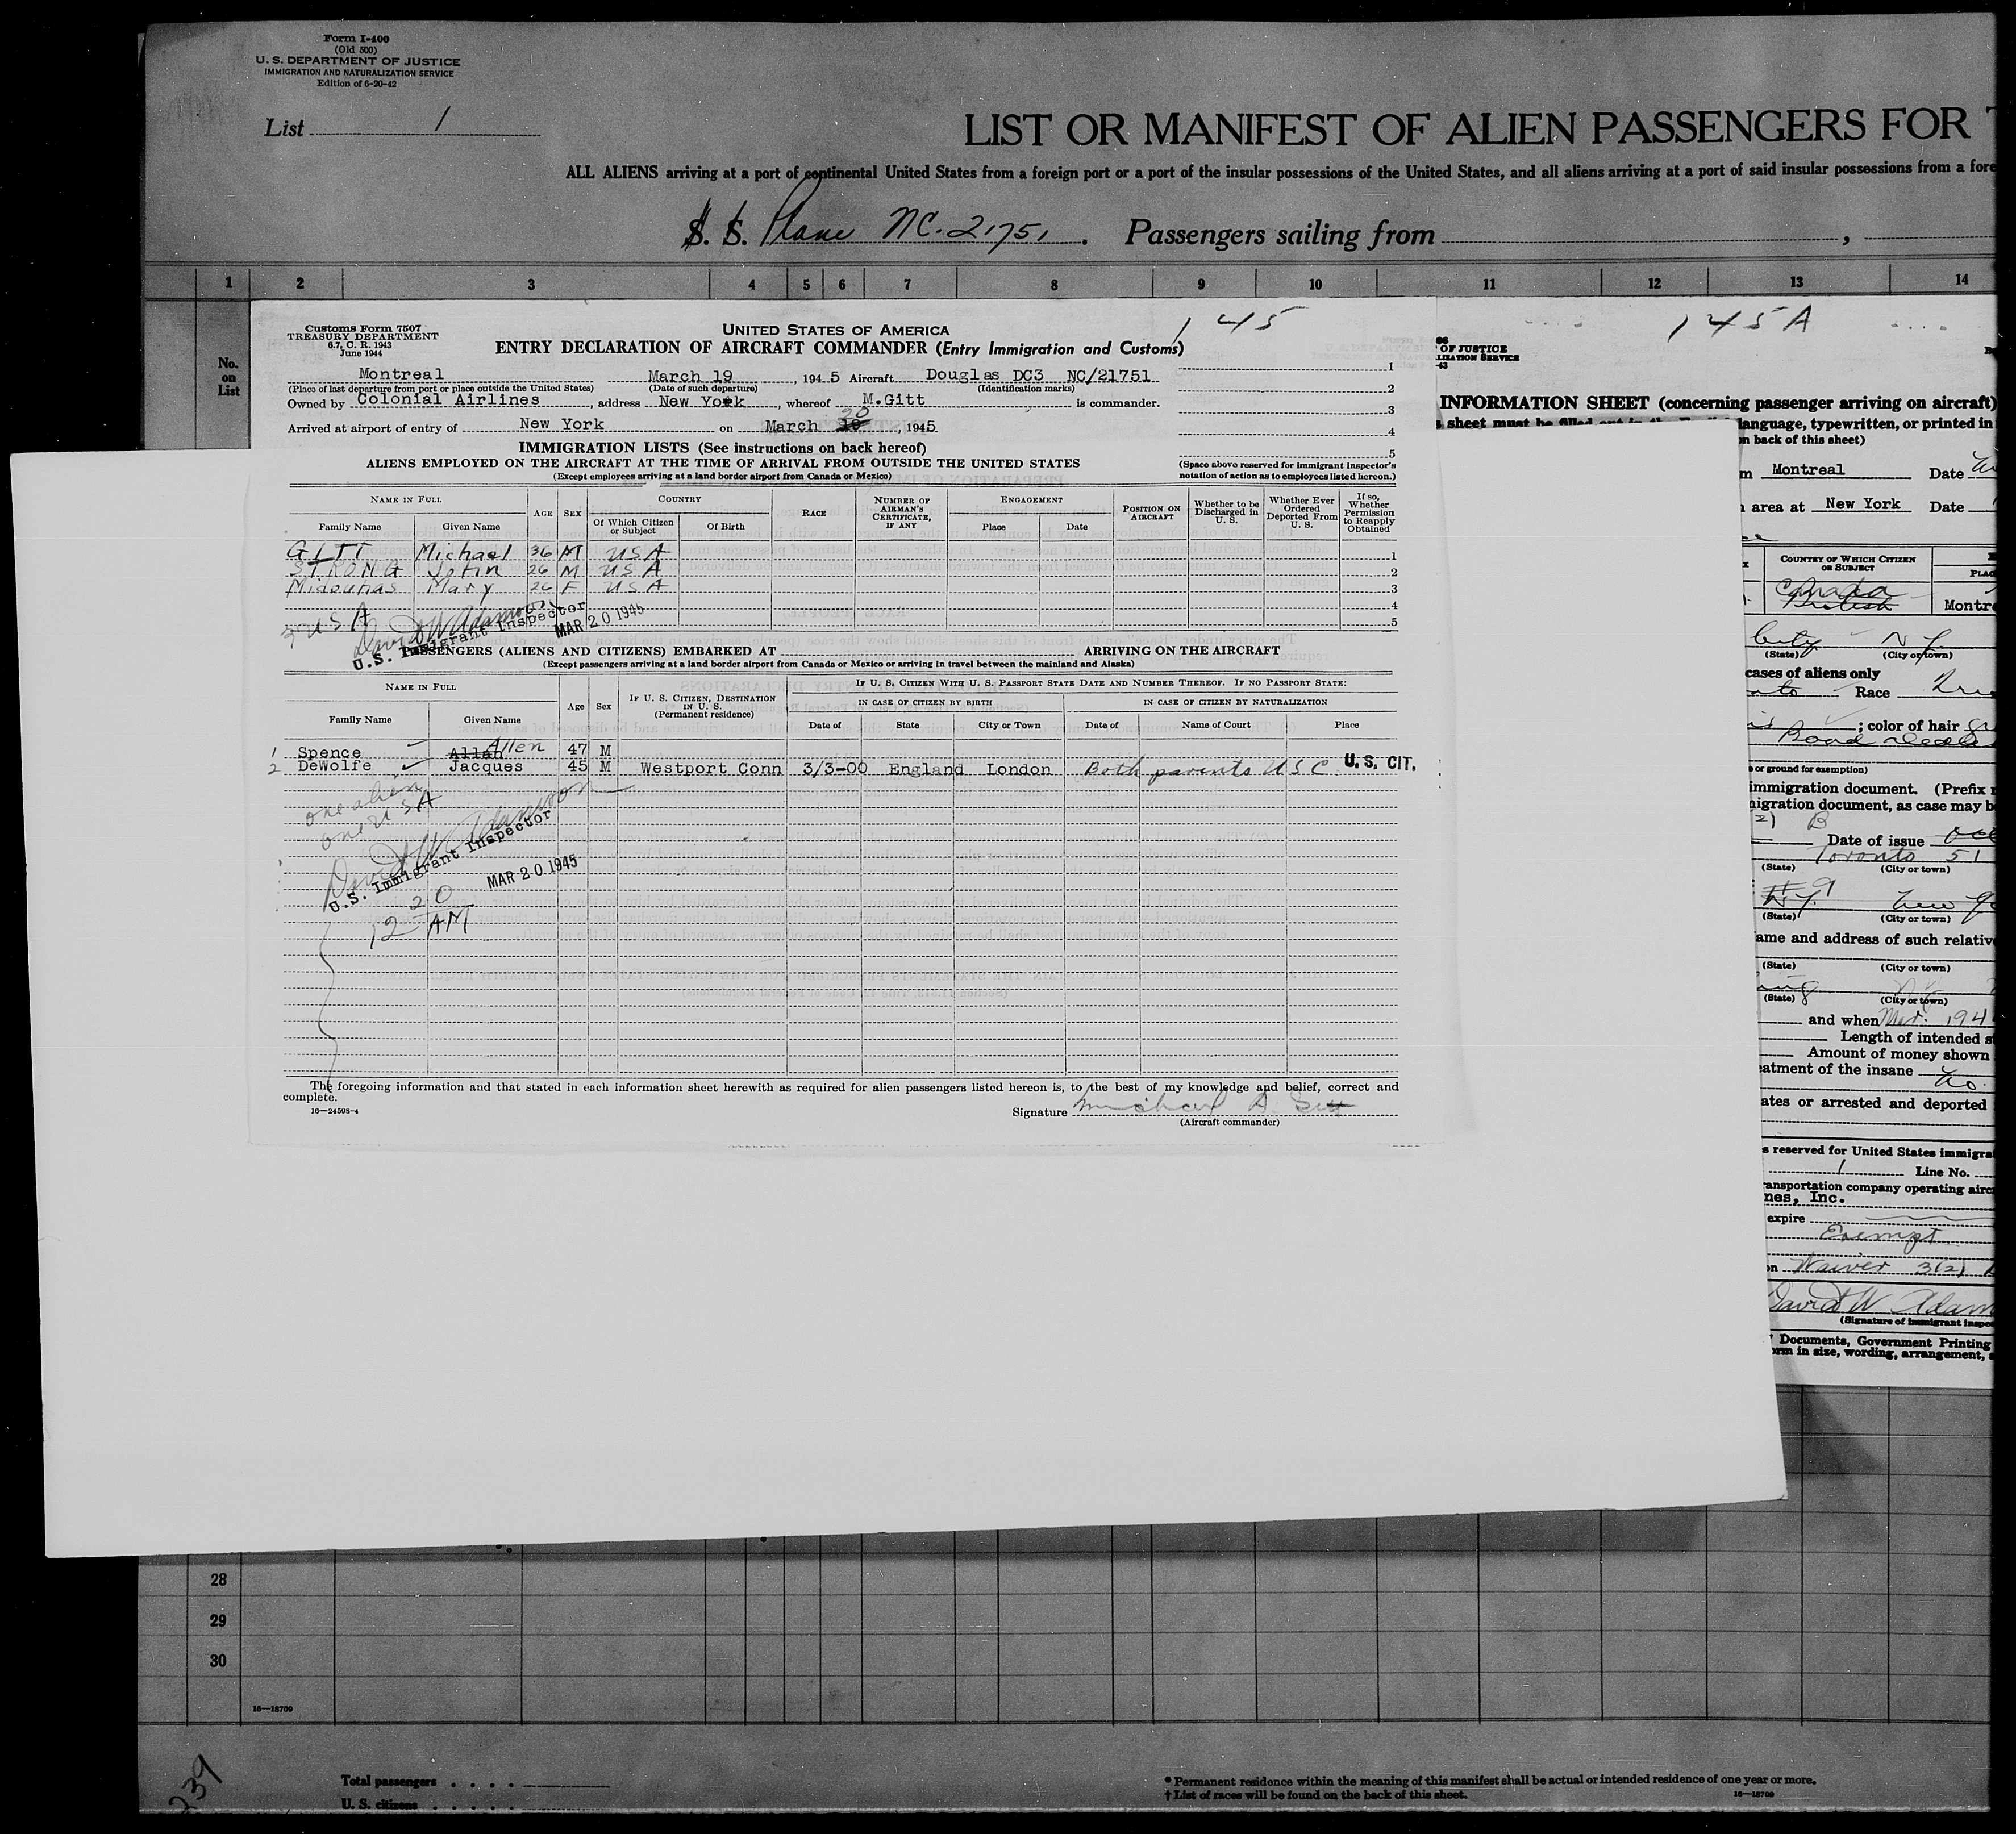 Form I-400
(Old 500)
U. S. DEPARTMENT OF JUSTICE
IMMIGRATION AND NATURALIZATION SERVICE
Edition of 6-20-42
List 1
LIST OR MANIFEST OF ALIEN PASSENGERS FOR
ALL ALIENS arriving at a port of continental United States from a foreign port or a port of the insular possessions of the United States, and all aliens arriving at a port of said insular possessions from a fore
S. S. Plane NC. 21751. Passengers sailing from
1 2 3 4 5 6 7 8 9 10 11 12 13 14
No. on List
Customs Form 7507
TREASURY DEPARTMENT
6.7, C. R. 1943
June 1944
UNITED STATES OF AMERICA
145
ENTRY DECLARATION OF AIRCRAFT COMMANDER (Entry Immigration and Customs)
Montreal March 19, 1945 Aircraft Douglas DC3 NC/21751
(Place of last departure from port or place outside the United States) (Date of such departure) (Identification marks)
Owned by Colonial Airlines, address New York, whereof M.Gitt is commander.
Arrived at airport of entry of New York on March 20, 1945
1
2
3
4
5
IMMIGRATION LISTS (See instructions on back hereof)
ALIENS EMPLOYED ON THE AIRCRAFT AT THE TIME OF ARRIVAL FROM OUTSIDE THE UNITED STATES
(Except employees arriving at a land border airport from Canada or Mexico)
(Space above reserved for immigrant inspector's
notation of action as to employees listed hereon.)
NAME IN FULL AGE SEX COUNTRY RACE NUMBER OF AIRMAN'S CERTIFICATE, IF ANY ENGAGEMENT POSITION ON AIRCRAFT Whether to be Discharged in U. S. Whether Ever Ordered Deported From U. S. If so, Whether Permission to Reapply Obtained
Family Name Given Name Of Which Citizen or Subject Of Birth Place Date
GITT Michael 36 M USA 1
STRONG John 26 M USA 2
Midounas Mary 26 F USA 3
4
5
3 USA
David W Adamson
U.S. Immigrant Inspector
MAR 20 1945
PASSENGERS (ALIENS AND CITIZENS) EMBARKED AT ARRIVING ON THE AIRCRAFT
(Except passengers arriving at a land border airport from Canada or Mexico or arriving in travel between the mainland and Alaska)
NAME IN FULL Age Sex IF U. S. CITIZEN, DESTINATION IN U. S. (Permanent residence) IF U. S. CITIZEN WITH U. S. PASSPORT STATE DATE AND NUMBER THEREOF. IF NO PASSPORT STATE:
IN CASE OF CITIZEN BY BIRTH IN CASE OF CITIZEN BY NATURALIZATION
Family Name Given Name Date of State City or Town Date of Name of Court Place
1 Spence Allan Allen 47 M
2 DeWolfe Jacques 45 M Westport Conn 3/3-00 England London Both parents USC U.S. CIT.
one alien
one USA
David W Adamson
U.S. Immigrant Inspector
MAR 20 1945
20
12 AM
The foregoing information and that stated in each information sheet herewith as required for alien passengers listed hereon is, to the best of my knowledge and belief, correct and
complete.
16—24598-4
Signature Michael A. Gitt
(Aircraft commander)
145A
OF JUSTICE
INFORMATION SHEET (concerning passenger arriving on aircraft)
language, typewritten, or printed in
on back of this sheet)
Montreal Date
area at New York Date
COUNTRY OF WHICH CITIZEN OR SUBJECT
Canada
British Montre
N Y
(State) (City or town)
cases of aliens only
Race
; color of hair
or ground for exemption)
immigration document. (Prefix
migration document, as case may b
Date of issue Oct
Toronto 51
(State) (City or town)
N.Y. New
(State) (City or town)
ame and address of such relativ
(State) (City or town)
(State) (City or town)
and when Mar. 194
Length of intended s
Amount of money shown
eatment of the insane No.
ates or arrested and deported
s reserved for United States immigra
1 Line No.
ransportation company operating airc
nes, Inc.
expire
Exempt
on Waiver 3(2)
David W Adam
(Signature of immigrant inspe
Documents, Government Printing
orm in size, wording, arrangement,
28
29
30
16—18709
239
Total passengers . . . .
U. S. citizens . . . . .
* Permanent residence within the meaning of this manifest shall be actual or intended residence of one year or more.
† List of races will be found on the back of this sheet.
16—18709